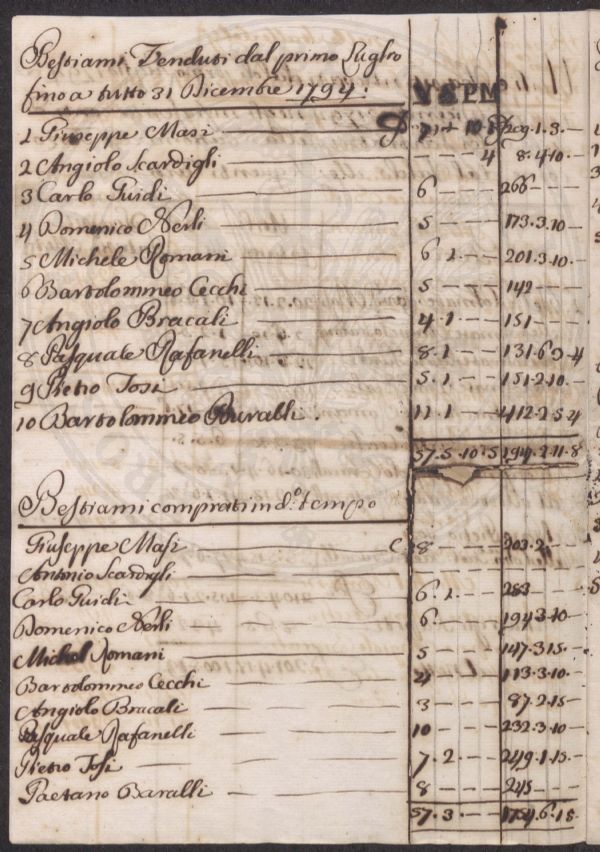 Bestiami Venduti dal primo Luglio
fino a tutto 31 Dicembre 1794.
V S P M
1 Giuseppe Masi 7 1 10 1 209.1.3.—
2 Angiolo Scardigli — — 4 8.4.10.—
3 Carlo Guidi 6 — — — 266 — — —
4 Domenico Nerli 5 — — — 173.3.10 —
5 Michele Romani 6 1 — — 201.3.10 —
6 Bartolommeo Cecchi 5 — — — 142 — — —
7 Angiolo Bracali 4 . 1 — — 151 — — —
8 Pasquale Rafanelli 8 . 1 — — 131.6.3.4
9 Pietro Tosi 5 . 1 — — 151.2.10 —
10 Bartolommeo Buralli . 11 . 1 — — 412.2.5.4
57.5.10.5 194.2.11.8
Bestiami comprati in d.º tempo
Giuseppe Masi 8 — — 203.2
Antonio Scardigli
Carlo Guidi 6 1 — 283 —
Domenico Nerli 6 — — 194.3.10
Michel Romani 5 — — 147.3.15
Bartolommeo Cecchi — — 113.3.10
Angiolo Bracali 3 — — 87.2.15
Pasquale Rafanelli 10 — — 232.3.10
Pietro Tosi 7 . 2 — 249.1.15
Gaetano Baralli 8 — — 245 —
57.3.— 1754.6.15